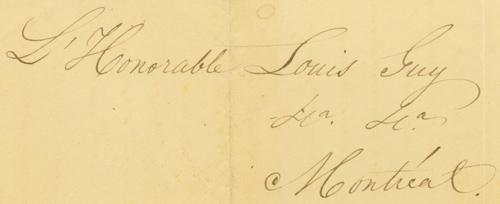 L'Honorable Louis Guy
&a. &a.
Montréal.